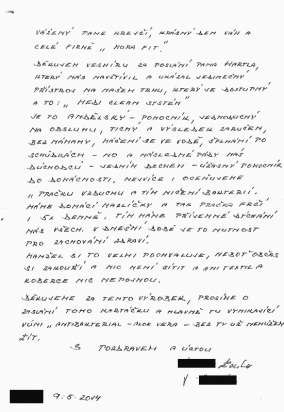 VÁŽENÝ PANE KREJČÍ, KRÁSNÝ DEN VÁM A
CELÉ FIRMĚ "HORA FIT".
DĚKUJEM VESMÍRU ZA POSLÁNÍ PANA MARTLA,
KTERÝ NÁS NAVŠTÍVIL A UKÁZAL JEDINEČNÝ
PŘÍSTROJ NA NAŠEM TRHU, KTERÝ JE DOSTUPNÝ
A TO: "MEDI CLEAN SYSTÉM"
JE TO ANDĚLSKÝ - POMOCNÍK, JEDNODUCHÝ
NA OBSLUHU, TICHÝ A VÝSLEDEK ZARUČEN,
BEZ NÁMAHY, MÁČENÍ SE VE VODĚ, ŠPLHÁNÍ PO
SCHŮDKÁCH - NO A NÁSLEDNÉ PÁDY NÁS
DŮCHODCŮ - JEDNÍM DECHEM - ÚŽASNÝ POMOCNÍK
DO DOMÁCNOSTI, NEJVÍCE I OCEŇUJEME
"PRAČKU VZDUCHU A TÍM NIČENÍ BAKTERIÍ.
MÁME DOMÁCÍ MAZLÍČKY A TAK PRAČKA FRČÍ
I 5X DENNĚ. TÍM MÁME PŘÍJEMNÉ DÝCHÁNÍ
NÁS VŠECH. V DNEŠNÍ DOBĚ JE TO NUTNOST
PRO ZACHOVÁNÍ ZDRAVÍ.
MANŽEL SI TO VELMI POCHVALUJE, NEBOŤ OBČAS
SI ZAKOUŘÍ A NIC NENÍ CÍTIT A ANI TEXTIL A
KOBERCE NIC NEPOJMOU.
DĚKUJEME ZA TENTO VÝROBEK, PROSÍME O
ZASLÁNÍ TOHO KARTÁČKU A HLAVNĚ TU VYNIKAJÍCÍ
VŮNI "ANTIBAKTERIAL - ALOE VERA - BEZ TY UŽ NEMŮŽEM
ŽÍT.
S POZDRAVEM A ÚCTOU
9.5.2014